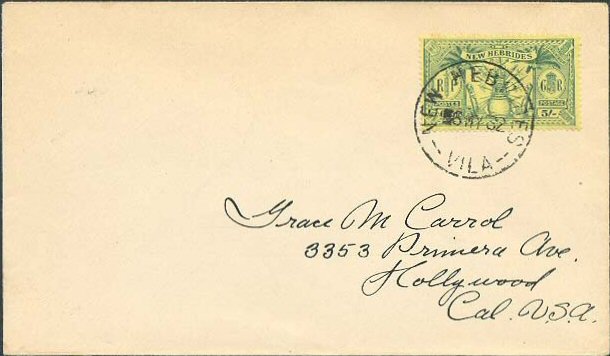 NEW HEBRIDES
RF GR
POSTES POSTAGE
5/-
NEW HEBRIDES
VILA
Grace M Carrol
3353 Primera Ave.
Hollywood
Cal. U.S.A.